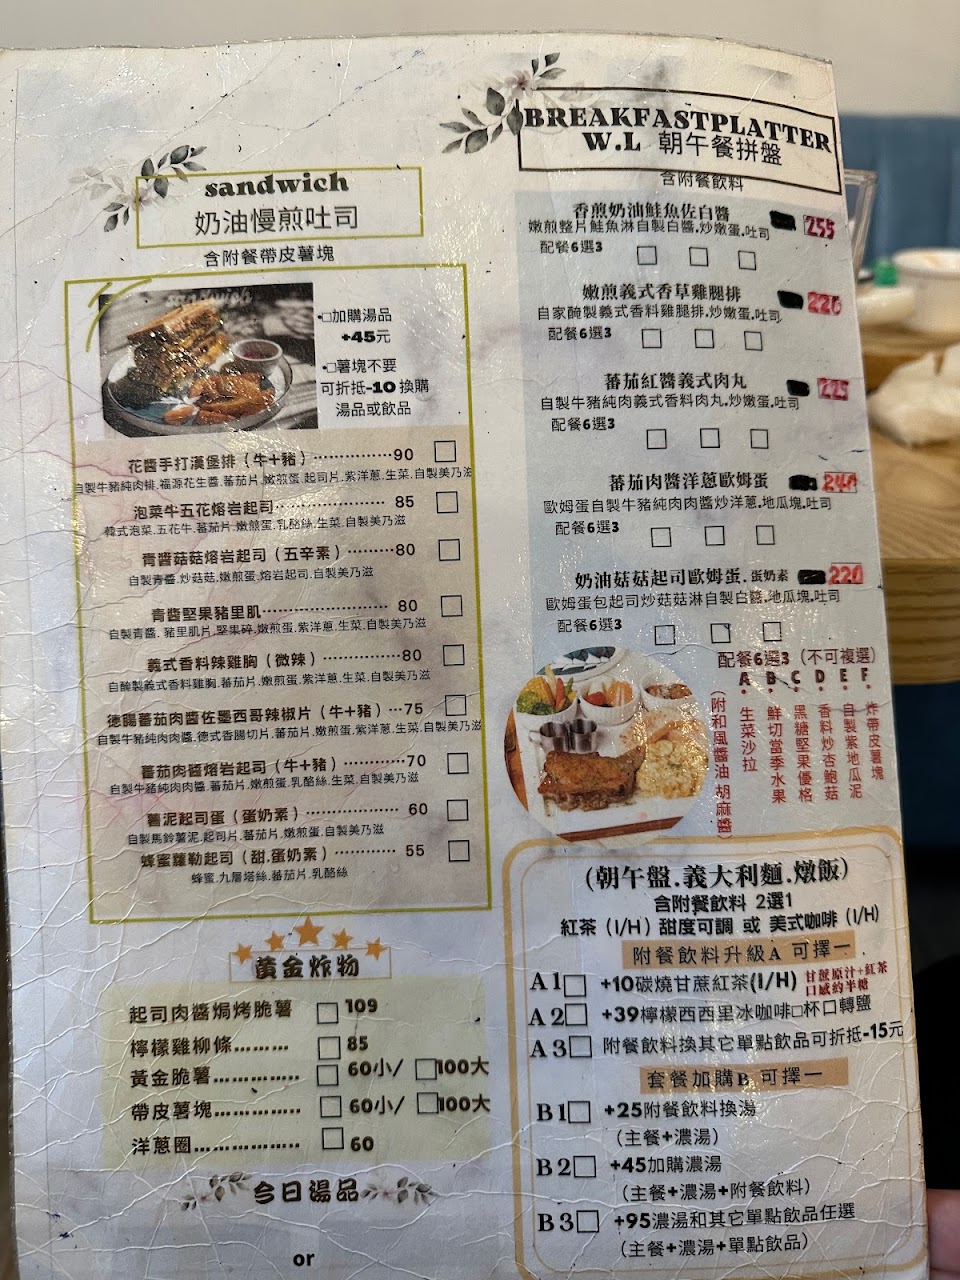 sandwich
奶油慢煎吐司
含附餐帶皮薯塊
sandwich
•□加購湯品
+45元
•□薯塊不要
可折抵-10 換購
湯品或飲品
花醬手打漢堡排（牛+豬）……………90 □
自製牛豬純肉排.福源花生醬.蕃茄片.嫩煎蛋.起司片.紫洋蔥.生菜.自製美乃滋
泡菜牛五花熔岩起司…………………85 □
韓式泡菜.五花牛.蕃茄片.嫩煎蛋.乳酪絲.生菜.自製美乃滋
青醬菇菇熔岩起司（五辛素）………80 □
自製青醬.炒菇菇.嫩煎蛋.熔岩起司.自製美乃滋
青醬堅果豬里肌……………………… 80 □
自製青醬.豬里肌片.堅果碎.嫩煎蛋.紫洋蔥.生菜.自製美乃滋
義式香料辣雞胸（微辣）……………80 □
自醃製義式香料雞胸.蕃茄片.嫩煎蛋.紫洋蔥.生菜.自製美乃滋
德腸蕃茄肉醬佐墨西哥辣椒片（牛+豬）…75 □
自製牛豬純肉肉醬.德式香腸切片.蕃茄片.嫩煎蛋.紫洋蔥.生菜.自製美乃滋
蕃茄肉醬熔岩起司（牛+豬）…………70 □
自製牛豬純肉肉醬.蕃茄片.嫩煎蛋.乳酪絲.生菜.自製美乃滋
薯泥起司蛋（蛋奶素）……………… 60 □
自製馬鈴薯泥.起司片.蕃茄片.嫩煎蛋.自製美乃滋
蜂蜜蘿勒起司（甜.蛋奶素）………… 55 □
蜂蜜.九層塔絲.蕃茄片.乳酪絲
黃金炸物
起司肉醬焗烤脆薯 □ 109
檸檬雞柳條……… □ 85
黃金脆薯………… □ 60小/ □100大
帶皮薯塊………… □ 60小/ □100大
洋蔥圈…………… □ 60
今日湯品
or
BREAKFASTPLATTER
W.L 朝午餐拼盤
含附餐飲料
香煎奶油鮭魚佐白醬 255
嫩煎整片鮭魚淋自製白醬.炒嫩蛋.吐司
配餐6選3 □ □ □
嫩煎義式香草雞腿排 220
自家醃製義式香料雞腿排.炒嫩蛋.吐司
配餐6選3 □ □ □
蕃茄紅醬義式肉丸 225
自製牛豬純肉義式香料肉丸.炒嫩蛋.吐司
配餐6選3 □ □ □
蕃茄肉醬洋蔥歐姆蛋 240
歐姆蛋自製牛豬純肉肉醬炒洋蔥.地瓜塊.吐司
配餐6選3 □ □ □
奶油菇菇起司歐姆蛋.蛋奶素 220
歐姆蛋包起司炒菇菇淋自製白醬.地瓜塊.吐司
配餐6選3 □ □ □
配餐6選3（不可複選）
A.生菜沙拉
（附和風醬油 胡麻醬）
B.鮮切當季水果
C.黑糖堅果優格
D.香料炒杏鮑菇
E.自製紫地瓜泥
F.炸帶皮薯塊
（朝午盤.義大利麵.燉飯）
含附餐飲料 2選1
紅茶（I/H）甜度可調 或 美式咖啡（I/H）
附餐飲料升級A 可擇一
A1□ +10碳燒甘蔗紅茶(I/H) 甘蔗原汁+紅茶
口感約半糖
A2□ +39檸檬西西里冰咖啡□杯口轉鹽
A3□ 附餐飲料換其它單點飲品可折抵-15元
套餐加購B 可擇一
B1□ +25附餐飲料換湯
（主餐+濃湯）
B2□ +45加購濃湯
（主餐+濃湯+附餐飲料）
B3□ +95濃湯和其它單點飲品任選
（主餐+濃湯+單點飲品）